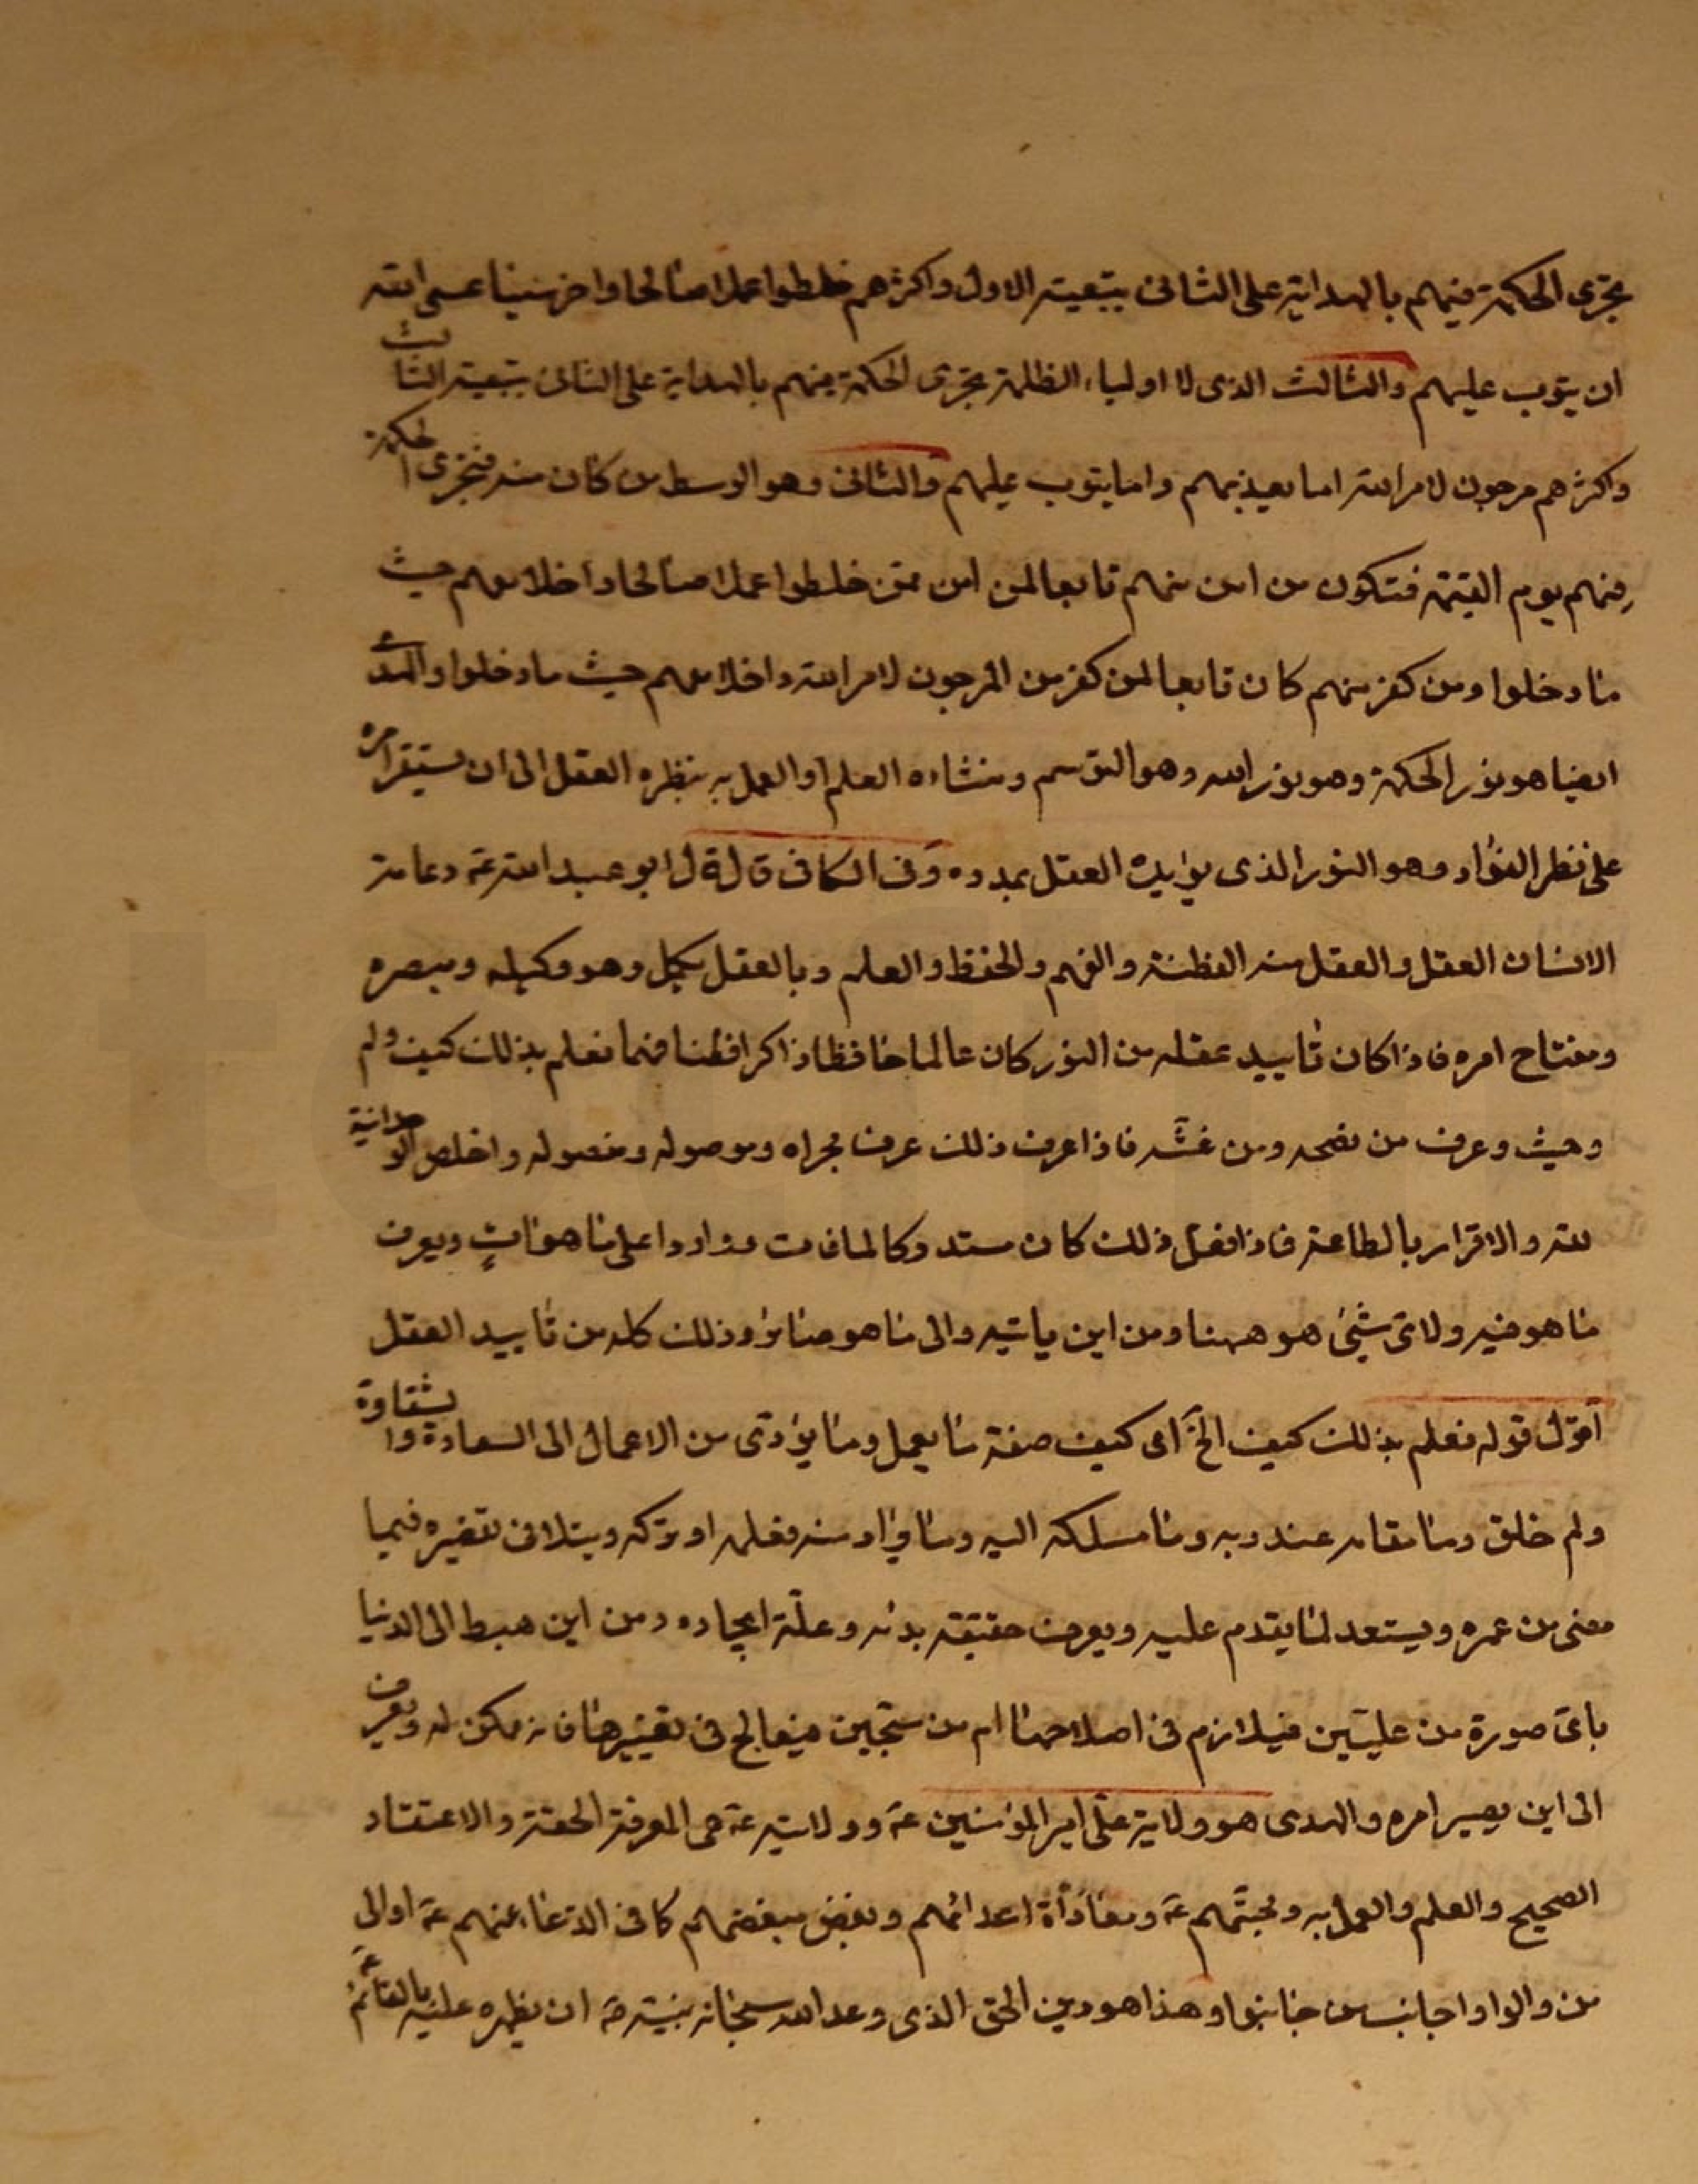 تجرى الحكمة فيهم بالهداية على الثانى بتبعية الاول واكثرهم خلطوا عملا صالحا واخر سيئا عسى الله
ان يتوب عليهم والثالث الذى لا اولياء الظلمة تجرى الحكمة فيهم بالهداية على الثانى بتبعية الثالث
واكثرهم مرجون لامر الله اما يعذبهم واما يتوب عليهم والثانى وهو الوسط من كان منه فتجرى الحكمة
فيهم يوم القيمة فتكون من امن منهم تابعا لمن امن ممن خلطوا عملا صالحا داخلا معهم حيث
ما دخلوا ومن كفر منهم كان تابعا لمن كفر من المرجون لامر الله داخلا معهم حيث ما دخلوا والهدى
ايضا هو نور الحكمة وهو نور الله وهو التوسم ومنشاءه العلم او العمل به بنظره العقل الى ان يستقر امره
على نظر الفؤاد وهو النور الذى يؤيده العقل بمدده وفى الكافى قال قال ابو عبد الله عه دعامة
الانسان العقل والعقل منه الفطنة والفهم والحفظ والعلم وبالعقل يكمل وهو وكيله ومبصره
ومفتاح امره فاذا كان تأييد عقله من النور كان عالما حافظا ذاكرا فطنا فهما فعلم بذلك كيف ولم
وحيث وعرف من نصحه ومن غشه فاذا عرف ذلك عرف مجراه وموصوله ومفصوله واخلص الوحدانية
لله والاقرار بالطاعة فاذا فعل ذلك كان مستدركا لما فات وواردا على ما هو اتٍ ويعرف
ما هو فيه ولاى شيئ هو ههنا ومن اين ياتيه والى ما هو صائر وذلك كله من تأييد العقل
اقول قوله فعلم بذلك كيف الخ اى كيف صفة ما يعمل وما يؤدى من الاعمال الى السعادة والشقاوة
ولم خلق وما مقامه عند ربه وما مسلكه اليه وما يراد منه فعله او تركه ويتلافى تقصيره فيما
مضى من عمره ويستعد لما يقدم عليه ويعرف حقيقة بدئه وعلّة ايجاده ومن اين هبط الى الدنيا
باىّ صورة من عليّين فيلازم فى اصلاحها ام من سجّين فيعالج فى تغييرها فانه ممكن له ويعرف
الى اين يصير امره والهدى هو ولاية علىّ امير المؤمنين عه وولايته عه هى المعرفة الحقة والاعتقاد
الصحيح والعلم والعمل به ومحبّتهم عه ومعاداة اعدائهم وبغض مبغضهم كما فى الدعاء عنهم عه اوالى
من والوا واجانب من جانبوا وهذا هو دين الحق الذى وعد الله سبحانه نبيّه ص ان يظهره عليه بالقائم عه